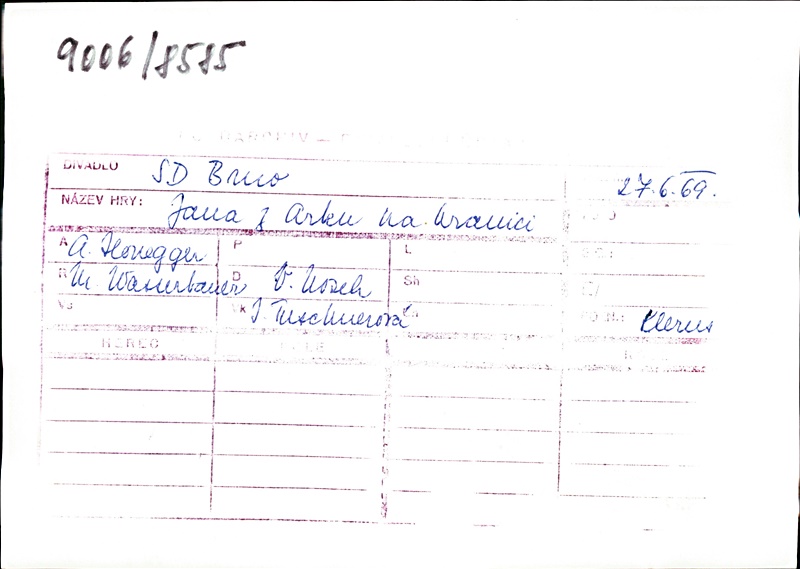 9006/8585
DIVADLO SD Brno 27.6.69.
NÁZEV HRY: Jana z Arku na hranici
A A. Honegger P L
R M. Wasserbauer D V. Nosek Sh
J. Tuschnerová Klerus
HEREC